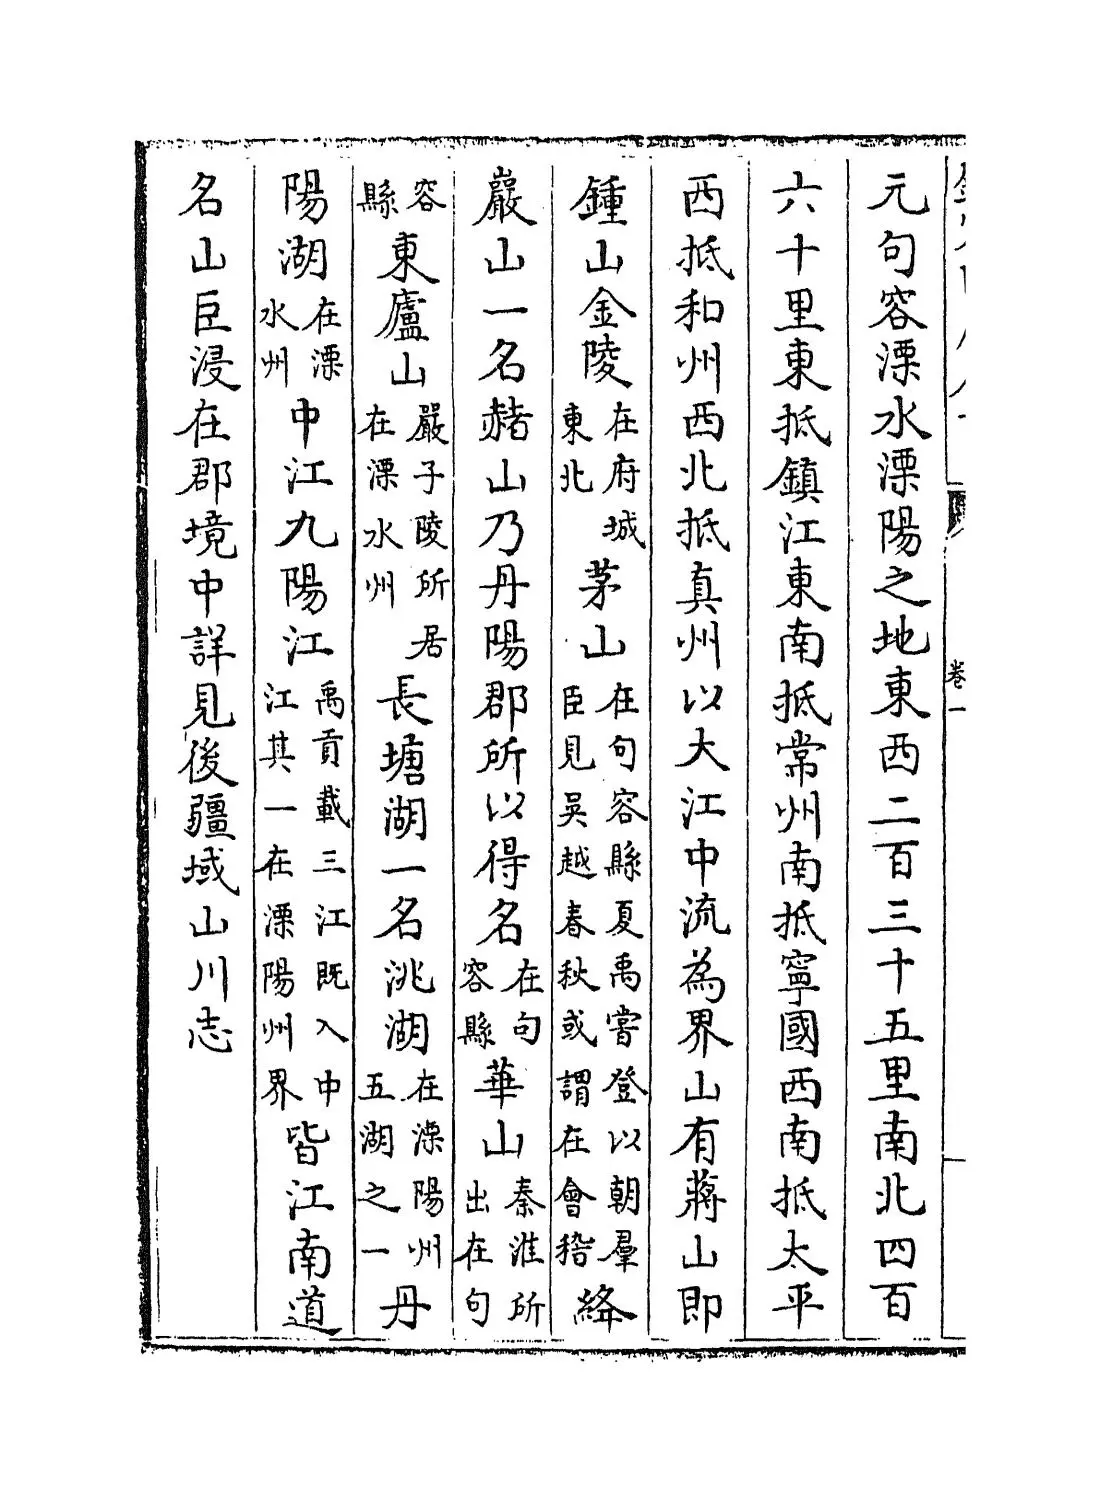 卷一
元句容溧水溧陽之地東西二百三十五里南北四百
六十里東抵鎮江東南抵常州南抵寧國西南抵太平
西抵和州西北抵真州以大江中流為界山有蔣山即
鍾山金陵在府城東北茅山在句容縣夏禹嘗登以朝羣臣見吳越春秋或謂在會稽絳
巖山一名赭山乃丹陽郡所以得名在句容縣華山秦淮所出在句
容縣東廬山嚴子陵所居在溧水州長塘湖一名洮湖在溧陽州五湖之一丹
陽湖在溧水州中江九陽江禹貢載三江既入中江其一在溧陽州界皆江南道
名山臣浸在郡境中詳見後疆域山川志